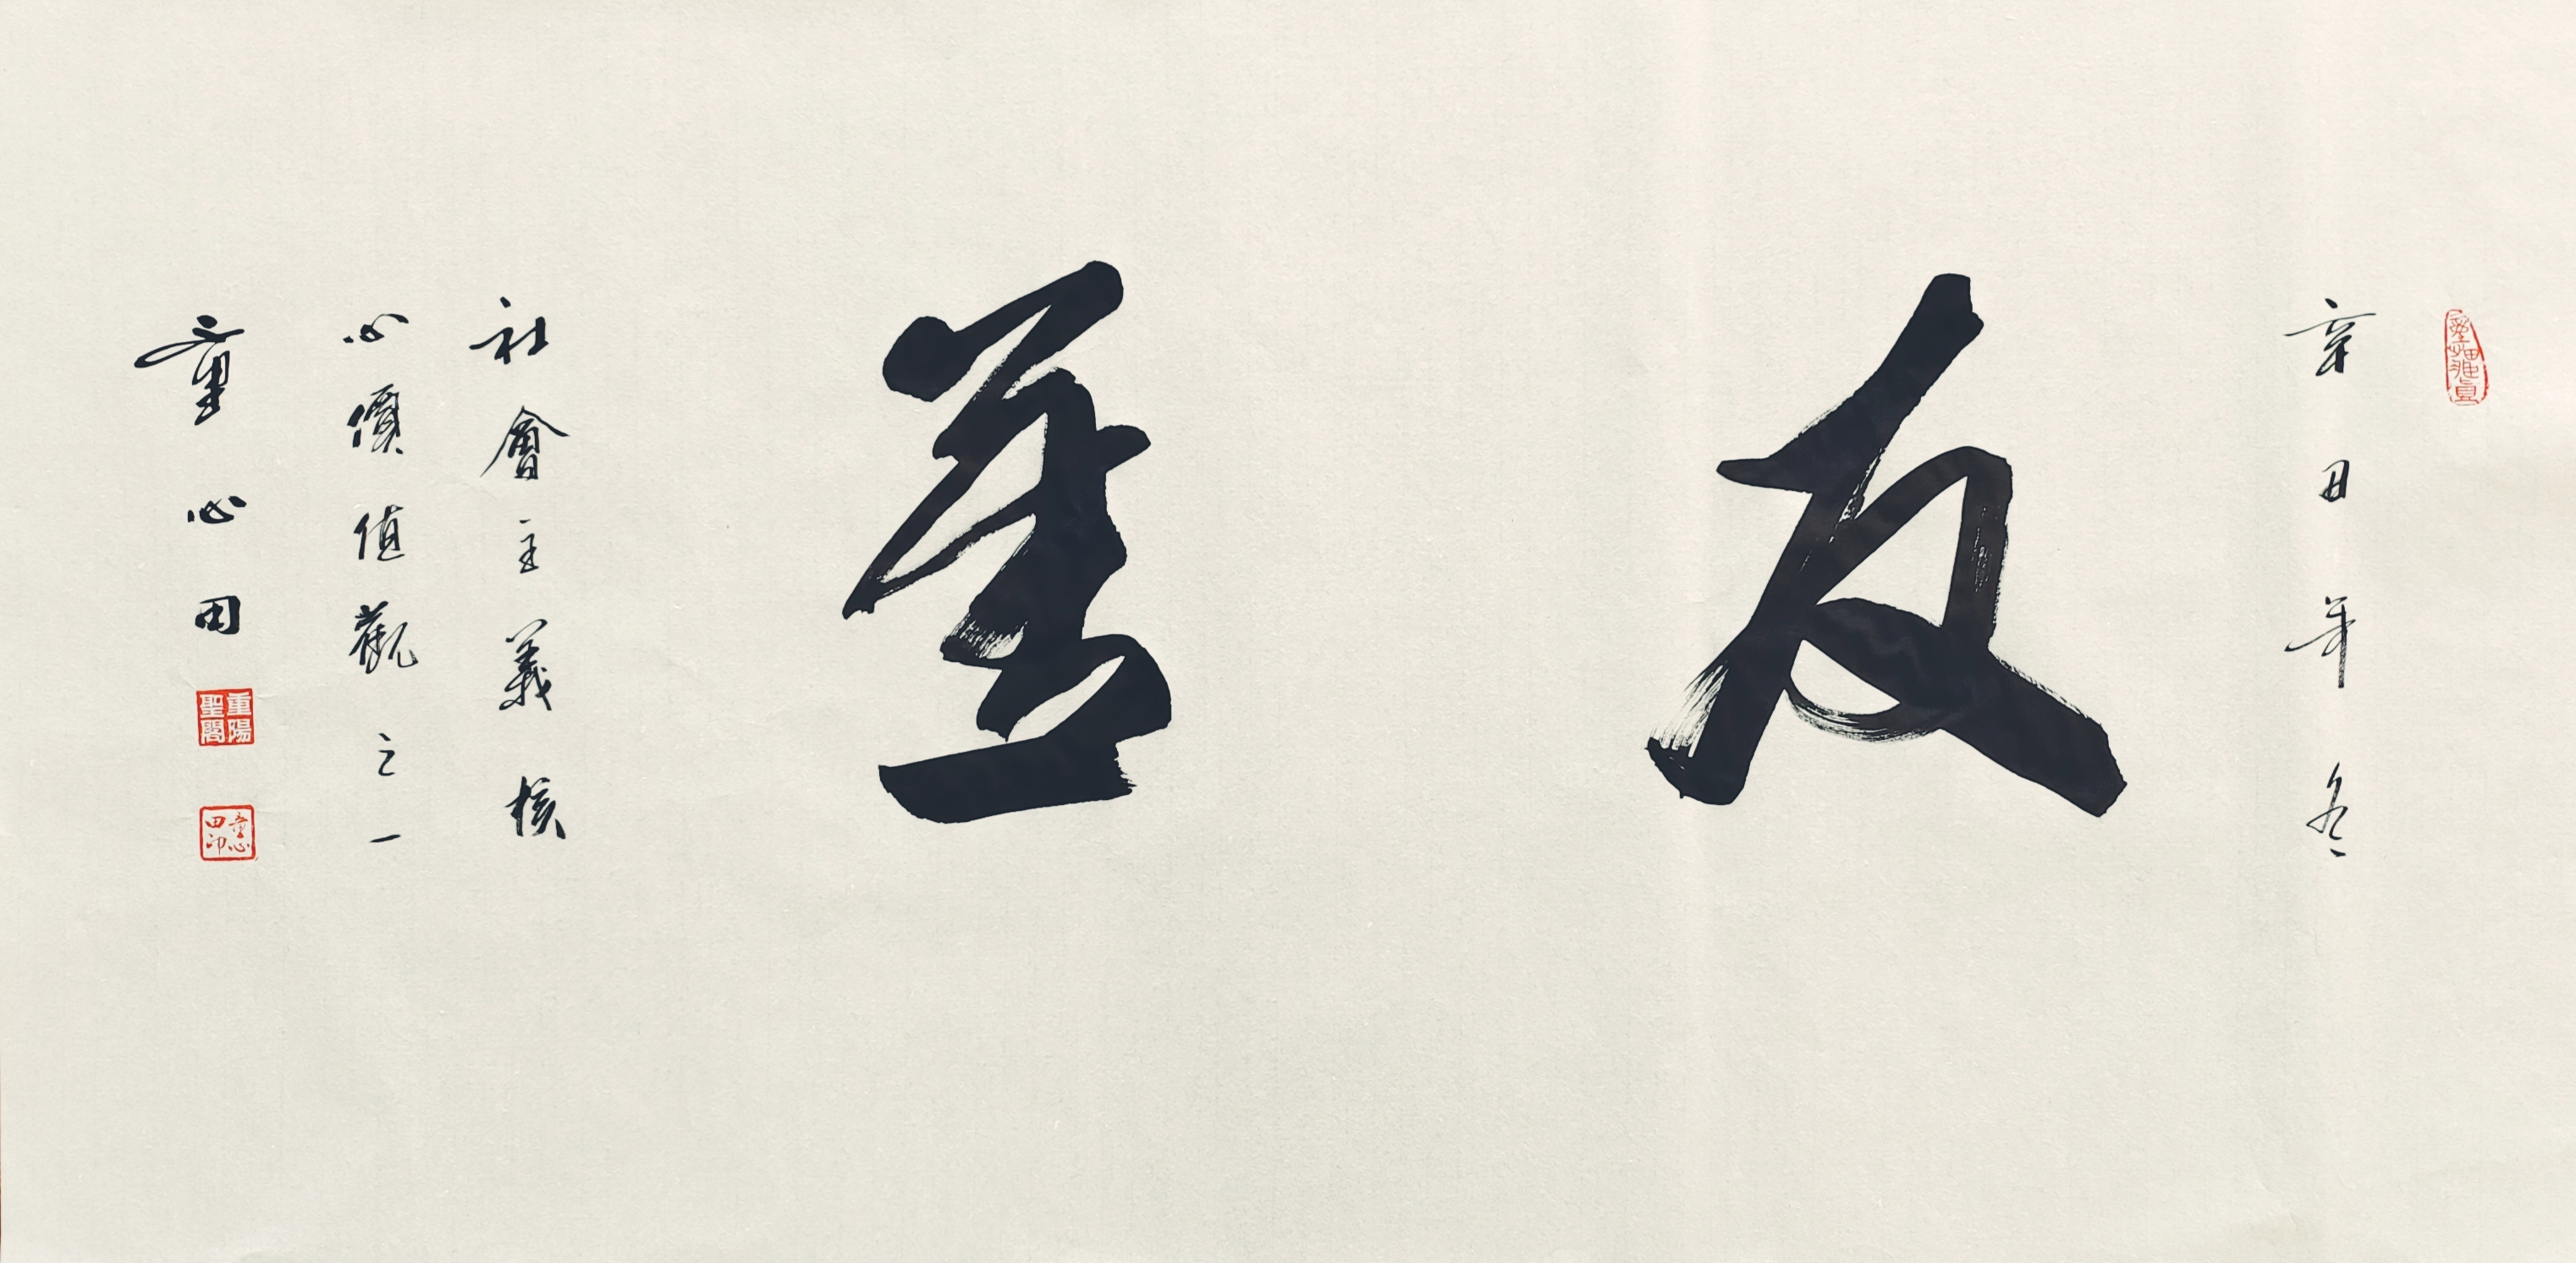 辛丑年冬
友善
社會主義核
心價值觀之一
童心田
重陽
聖閣
童心
田印